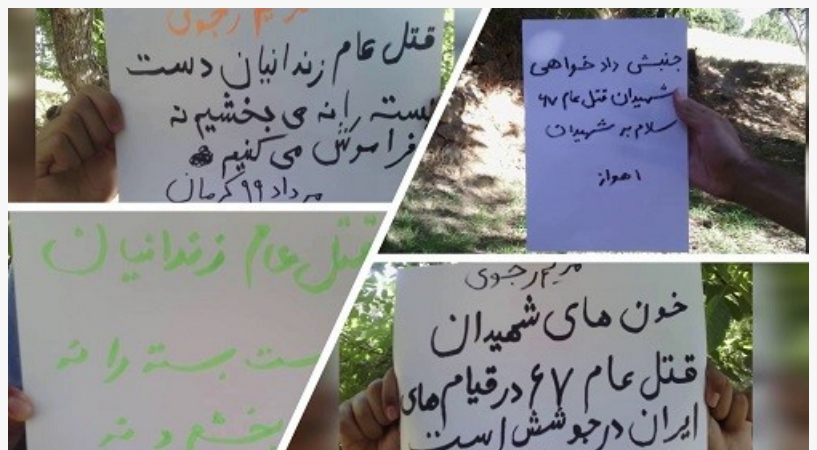 مریم رجوی
قتل عام زندانیان دست
بسته را نه می بخشیم نه
فراموش می کنیم
مرداد ۹۹ کرمان
جنبش داد خواهی
شهیدان قتل عام ۶۷
سلام بر شهیدان
اهواز
قتل عام زندانیان
دست بسته را نه
بخشم و نه
مریم رجوی
خون های شهیدان
قتل عام ۶۷ در قیام های
ایران در جوشش است